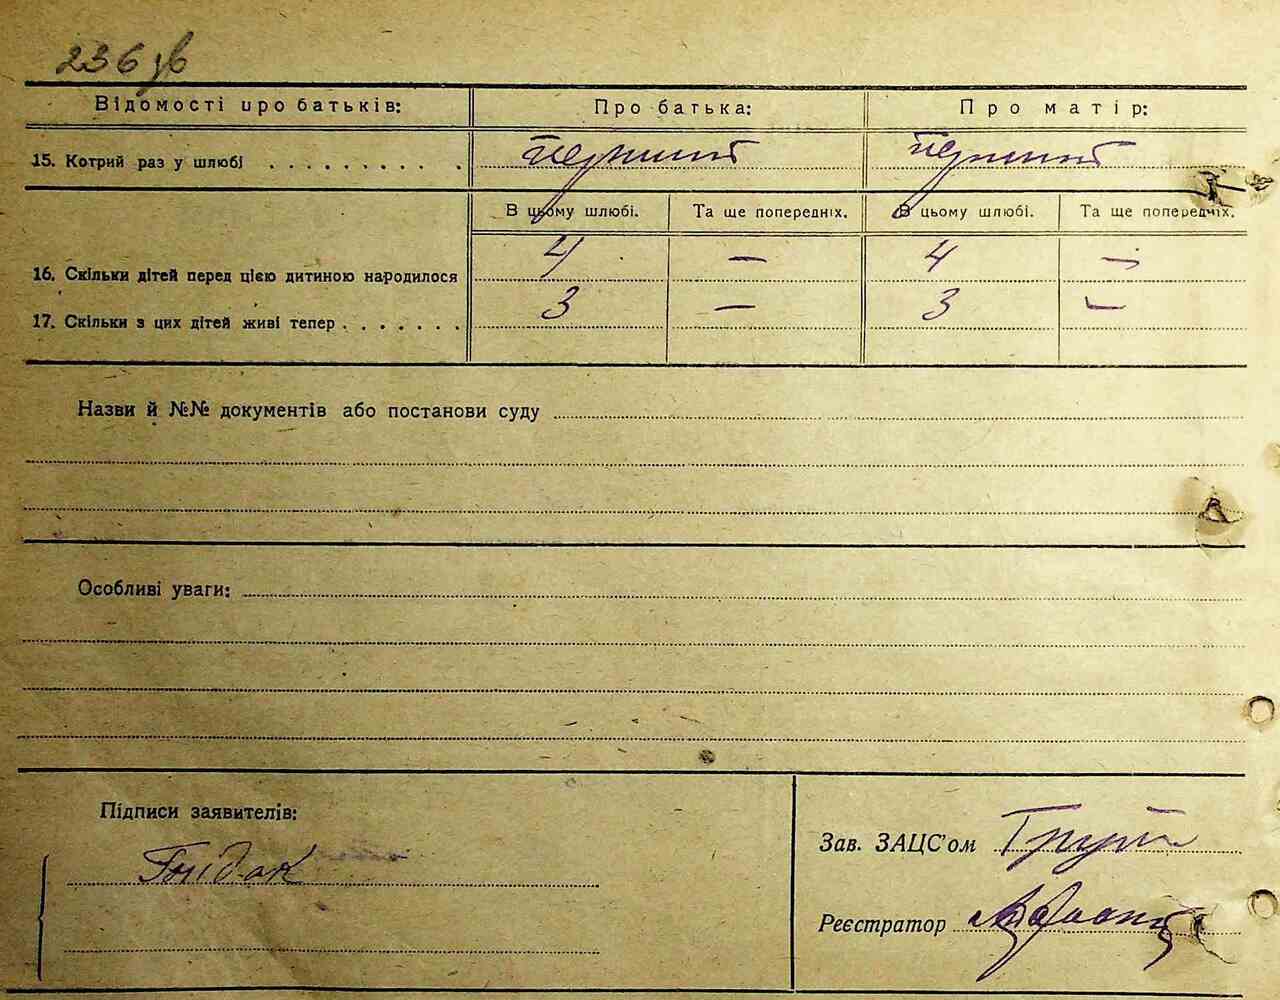 236 зв
Відомості про батьків: Про батька: Про матір:
15. Котрий раз у шлюбі . . . . . . . . . . перший перший
В цьому шлюбі. Та ще попередніх. В цьому шлюбі. Та ще попередніх.
16. Скільки дітей перед цією дитиною народилося 4 — 4 —
17. Скільки з цих дітей живі тепер . . . . . . . 3 — 3 —
Назви й №№ документів або постанови суду
Особливі уваги:
Підписи заявителів:
Зав. ЗАЦС'ом
Реєстратор